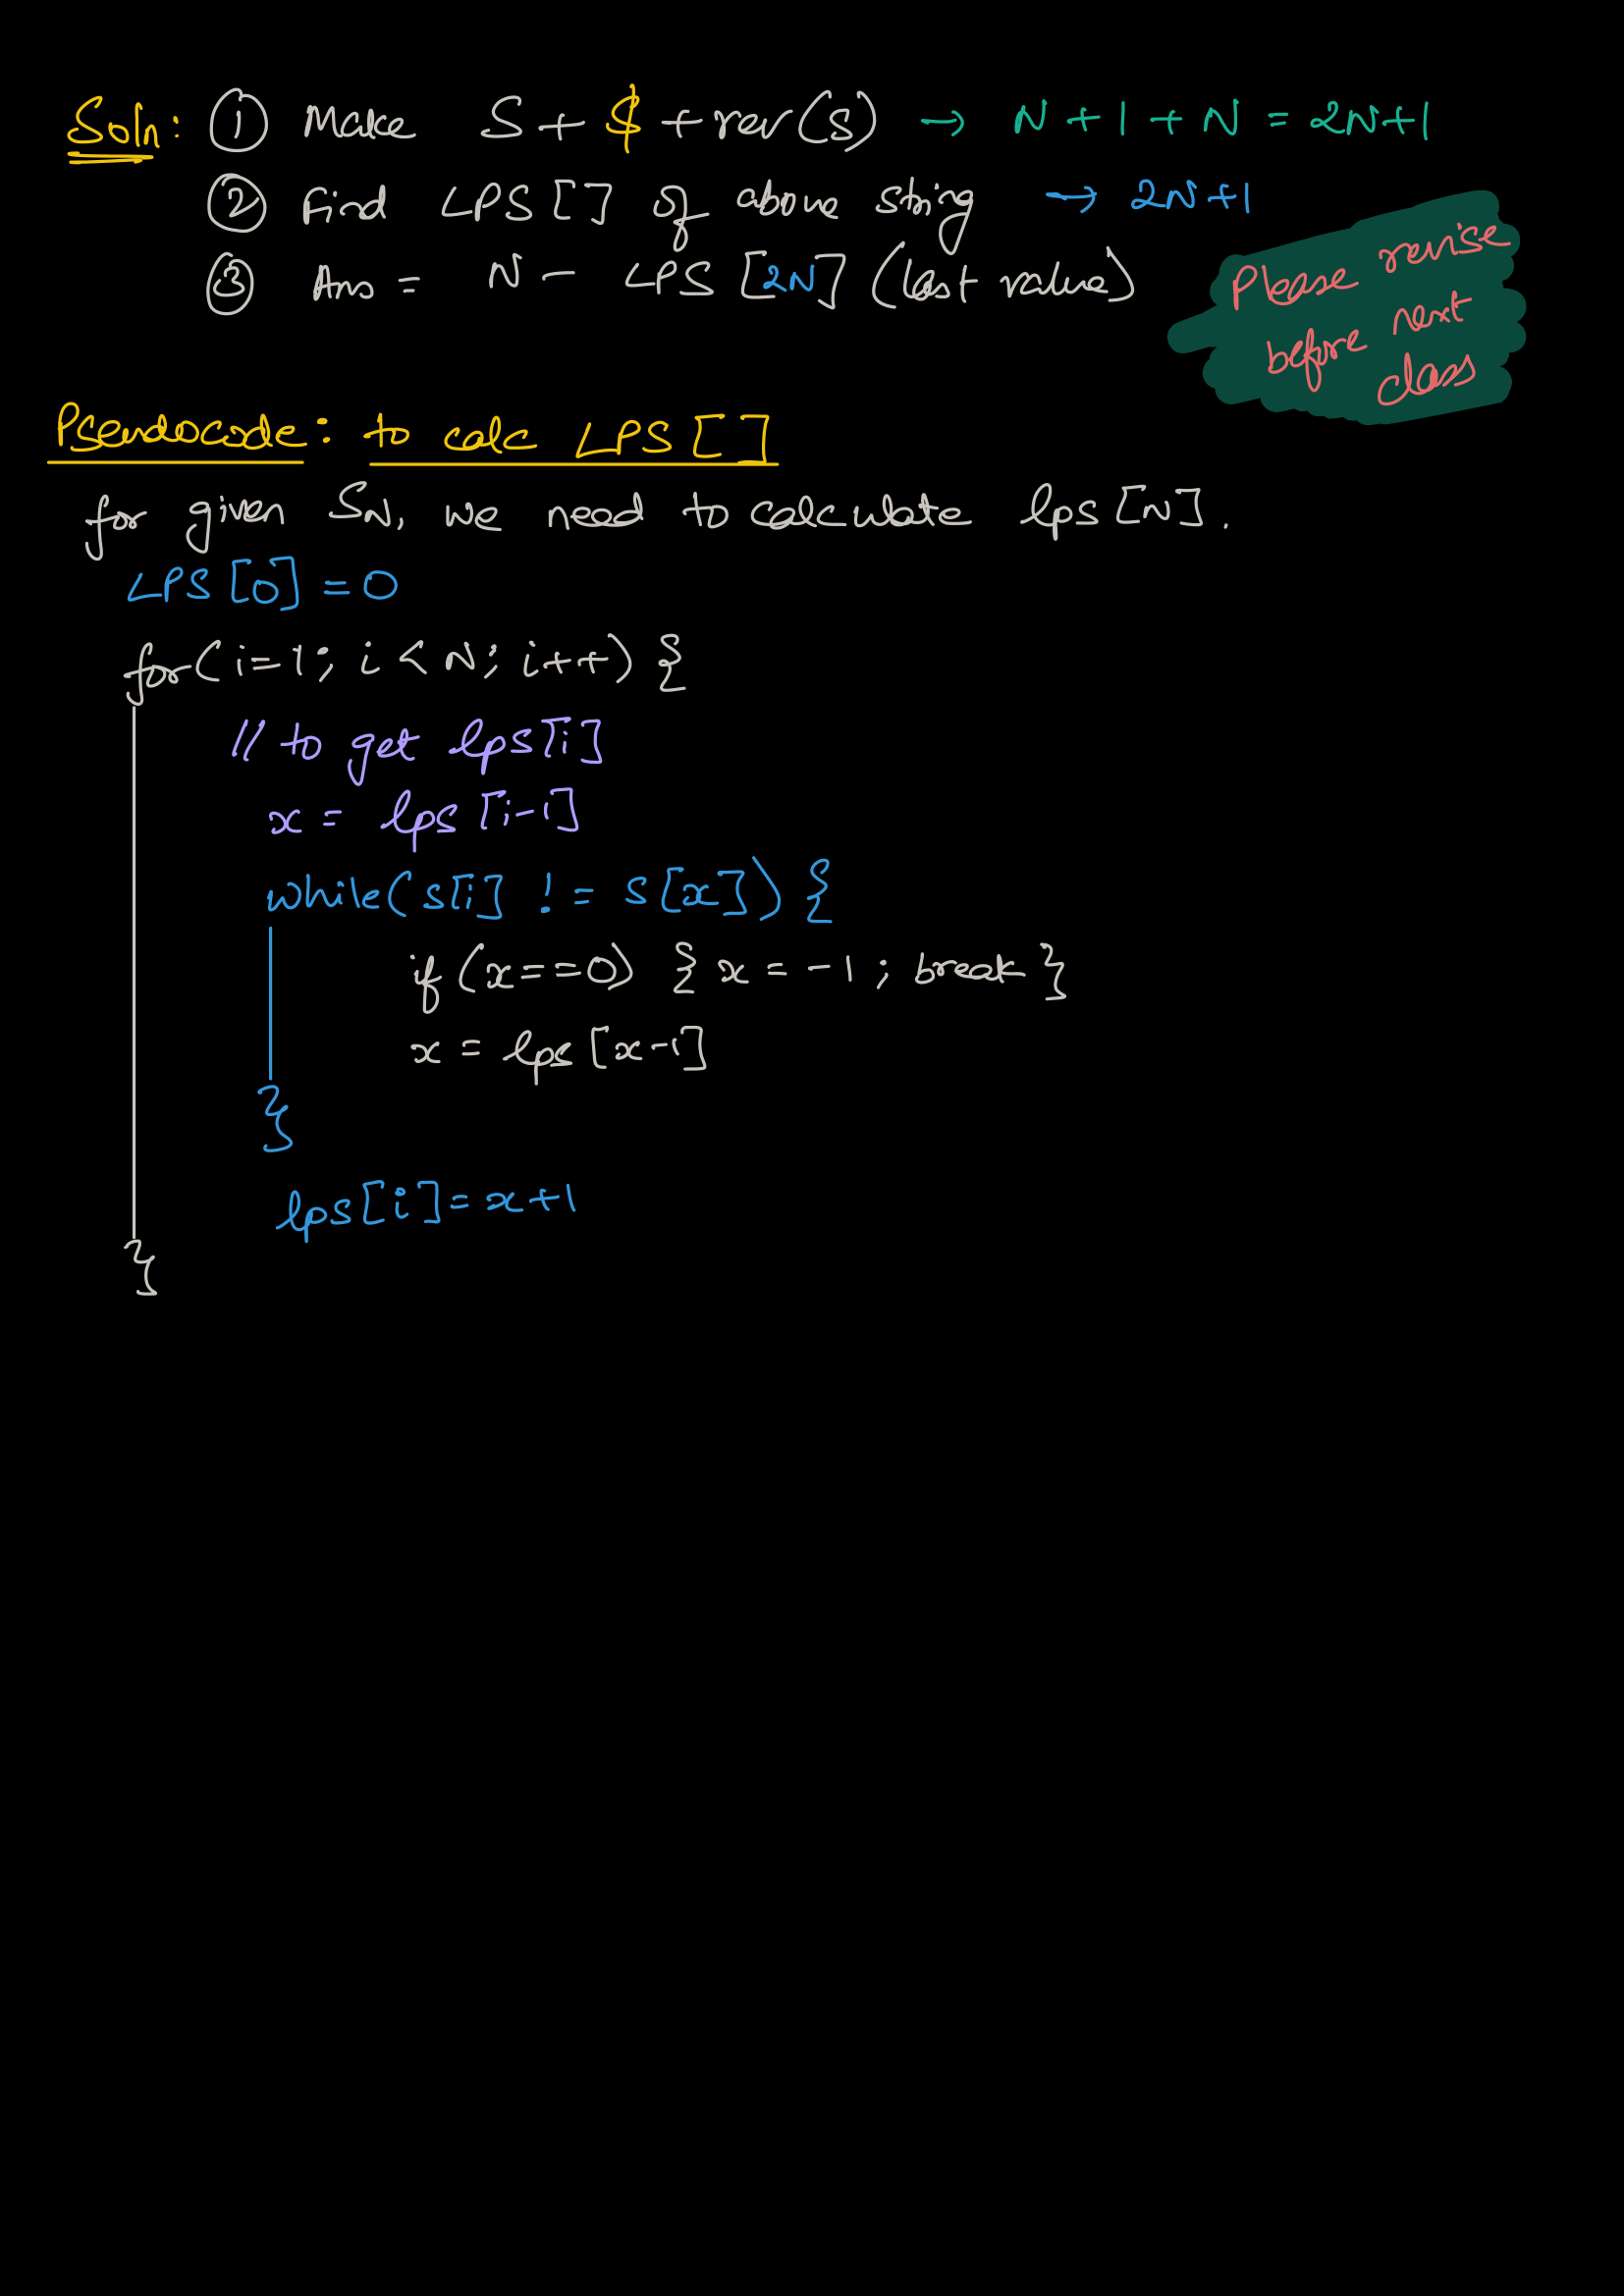 Soln: ① Make S + $ + rev(s) → N + 1 + N = 2N+1
② Find LPS [] of above string → 2N+1
③ Ans = N - LPS [2N] (last value)
Please revise
before next
class
Pseudocode: to calc LPS []
for given SN, we need to calculate lps [N].
LPS [0] = 0
for(i=1; i < N; i++) {
// to get lps[i]
x = lps [i-1]
while(s[i] != s[x]) {
if (x==0) { x = -1 ; break }
x = lps [x-1]
}
lps[i] = x+1
}